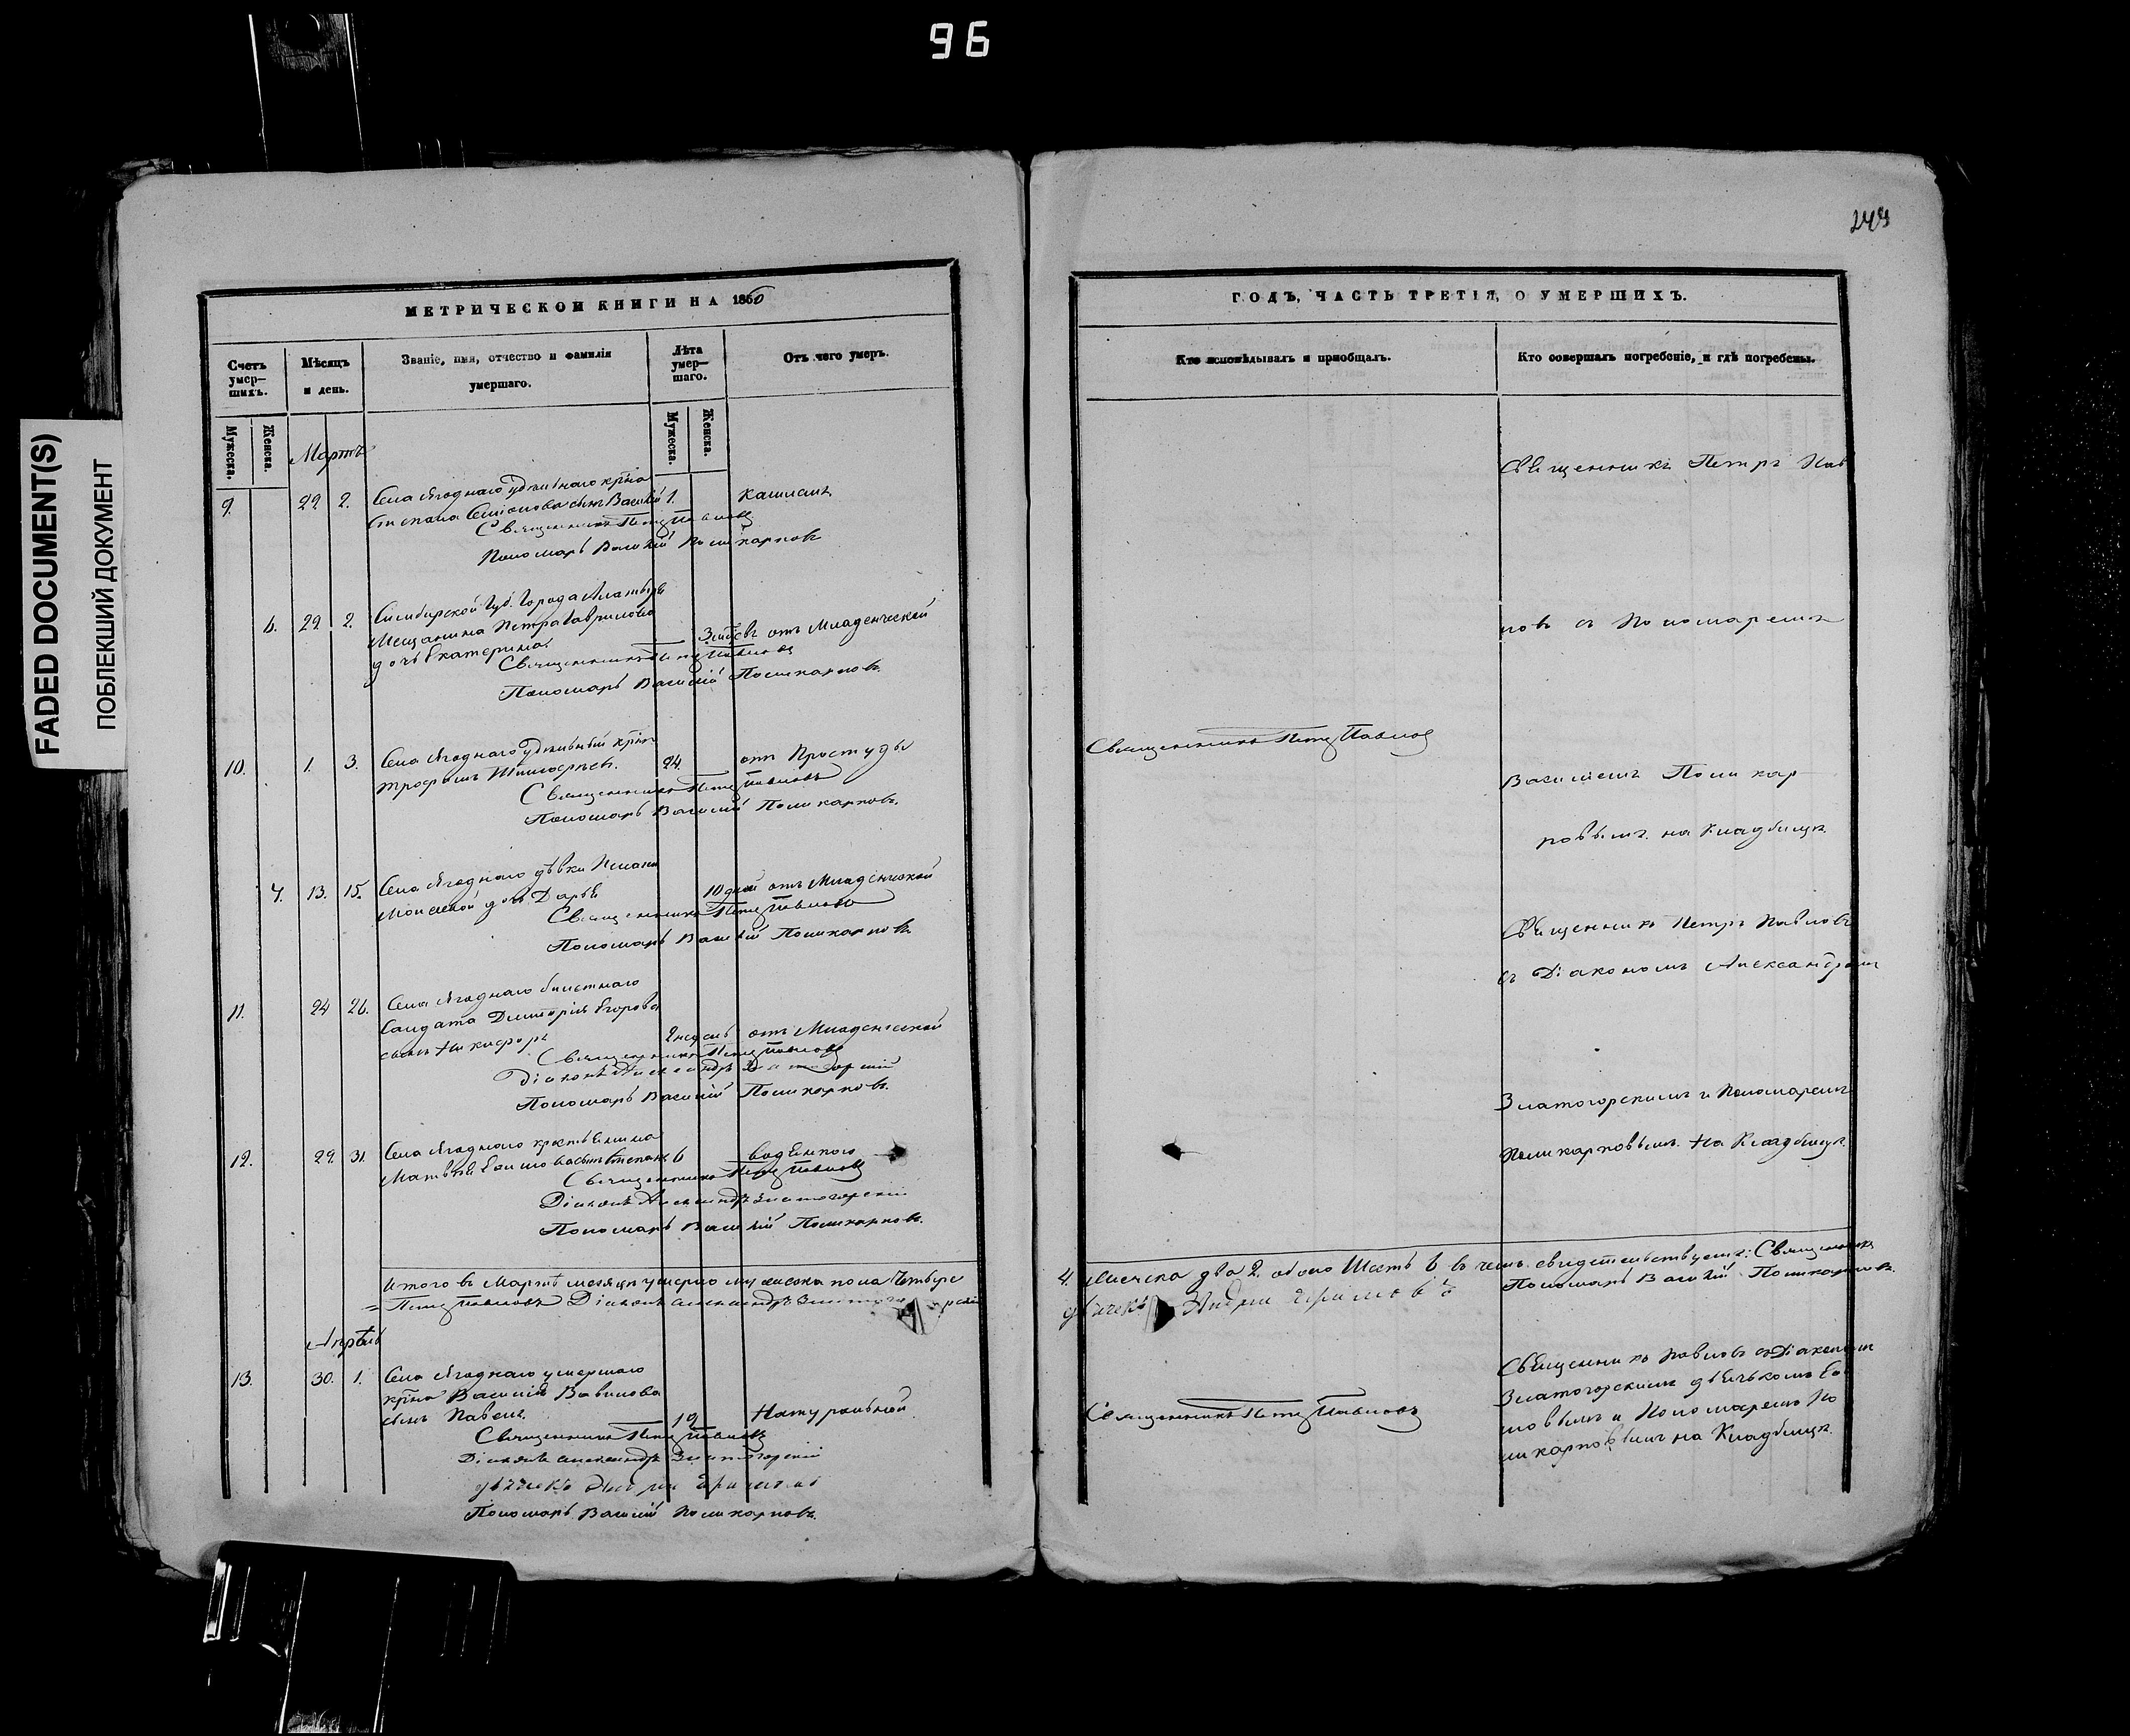 96
FADED DOCUMENT(S)
ПОБЛЕКШИЙ ДОКУМЕНТ
МЕТРИЧЕСКОЙ КНИГИ НА 1860
Счетъ умер-шихъ.
Мѣсяцъ и день.
Званіе, имя, отчество и фамилія умершаго.
Лѣта умер-шаго.
Отъ чего умеръ.
Мужеска. Женска.
Мужеска. Женска.
Мартъ
9. 29 2. Села Ягоднаго удѣльнаго крѣна
Степана Семіонова сынъ Василій 1. Кашлемъ
Священникъ Петръ Павловъ
Пономарь Василій Поликарповъ
6. 29 2. Симбирской Губ. Города Алатыря
Мещанина Петра Гаврилова
дочь Екатерина. отъ Младенческой
Священникъ Петръ Павловъ
Пономарь Василій Поликарповъ.
10. 1. 3. Села Ягоднаго удѣльный крѣн
24. отъ Простуды
Священникъ Петръ Павловъ
Пономарь Василій Поликарповъ.
13. 15. Села Ягоднаго дѣвки
дочь Дарья 10 дней отъ Младенческой
Священникъ Петръ Павловъ
Пономарь Василій Поликарповъ
11. 24 26. Села Ягоднаго билетнаго
Солдата Димитрія Егорова
сынъ Никифоръ отъ Младенческой
Священникъ Петръ Павловъ
Діаконъ Александръ Златогорскій
Пономарь Василій Поликарповъ.
12. 29. 31. Села Ягоднаго крестьянина
сынъ Степанъ 6
Священникъ Петръ Павловъ
Діаконъ Александръ Златогорскій
Пономарь Василій Поликарповъ.
Итого въ Мартѣ месяцѣ умерло мужеска пола Четыре
Петръ Павловъ Діаконъ Александръ Златогорскій
Апрѣль
13. 30. 1. Села Ягоднаго умершаго
крѣна Василія Вавилова
сынъ Павелъ. 19 Натуральной
Священникъ Петръ Павловъ
Діаконъ Александръ Златогорскій
дьячекъ
Пономарь Василій Поликарповъ.
ГОДЪ, ЧАСТЬ ТРЕТІЯ, О УМЕРШИХЪ.
Кто исповѣдывалъ и пріобщалъ.
Кто совершалъ погребеніе, и гдѣ погребены.
Священникъ Петръ Пав
ловъ съ Пономаремъ
Священникъ Петръ Павловъ
Василіемъ Поликар
повымъ на Кладбищѣ.
Священникъ Петръ Павловъ
съ Діакономъ Александромъ
Златогорскимъ и Пономаремъ
Поликарповымъ На Кладбищѣ.
4. Женска два 2 обоего Шесть 6 въ чемъ свидетельствуемъ: Священникъ
Пономарь Василій Поликарповъ.
дьячекъ
Священникъ Петръ Павловъ
Священникъ Павловъ съ Діакономъ
Златогорскимъ дьячкомъ
и Пономаремъ По
ликарповымъ на Кладбищѣ.